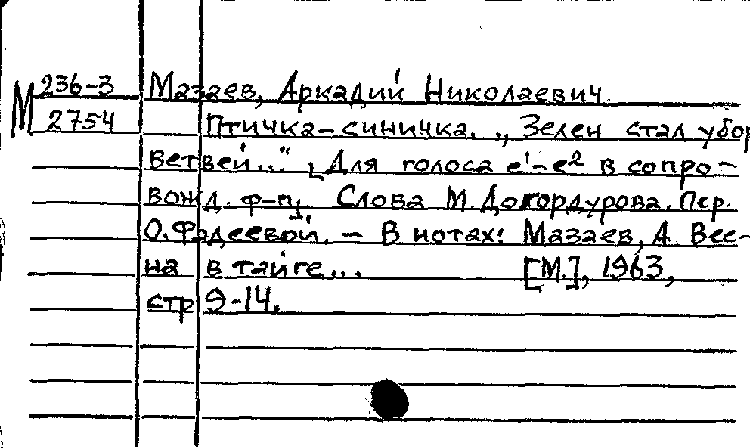 М 236-3 Мазаев, Аркадий Николаевич.
2754 Птичка-синичка. „Зелен стал убор
ветвей..." [Для голоса e¹-e² в сопро-
вожд. ф-п]. Слова М. Докордурова. Пер.
О. Фадеевой. — В нотах: Мазаев, А. Вес-
на в тайге... [М.], 1963,
стр 9-14.